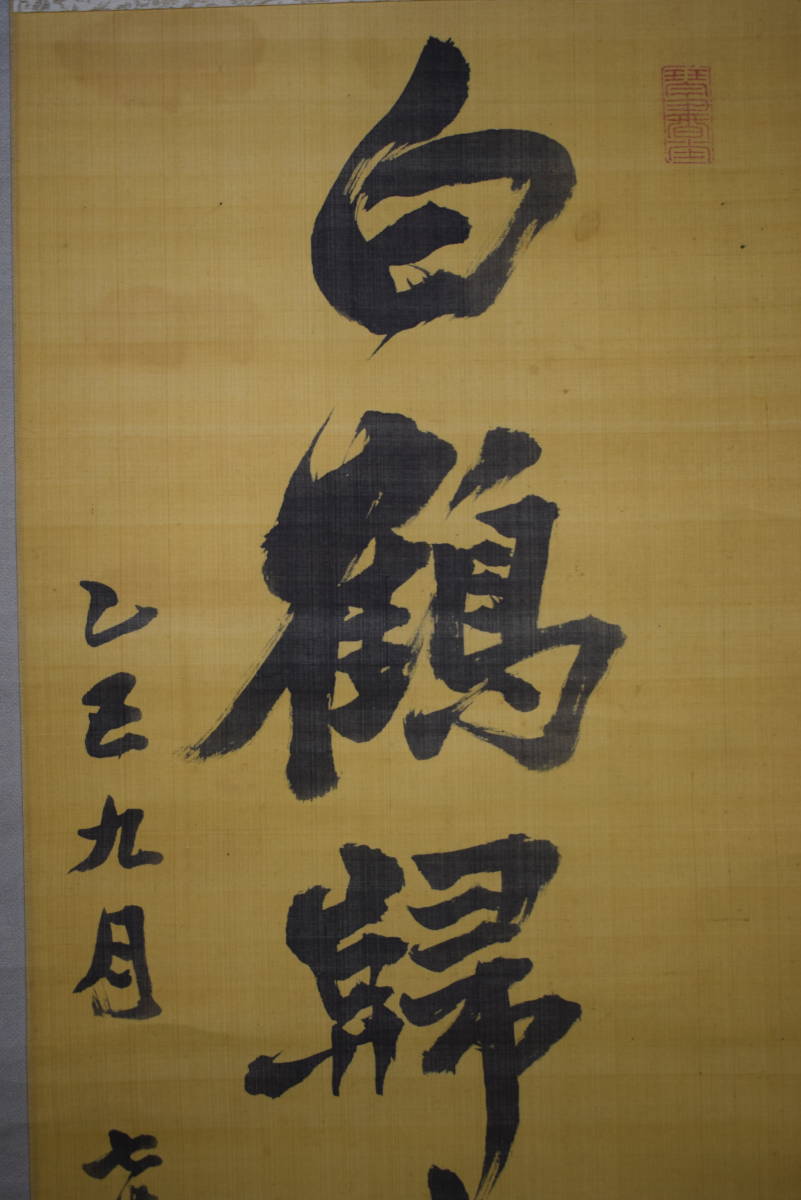 白鶴歸
乙巳九月 七